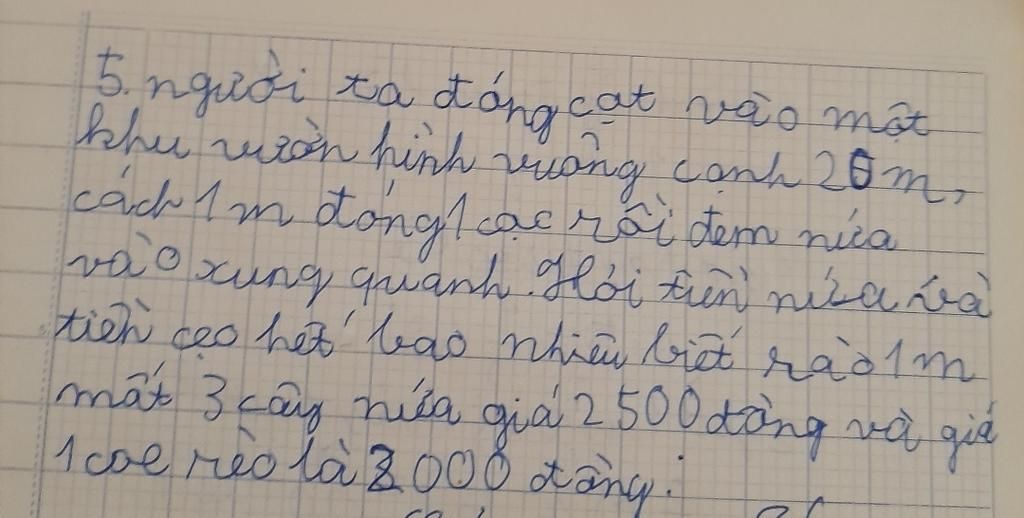 5. người ta đóng cạt vào một
khu vườn hình vuông cạnh 20m,
cách 1m đóng 1 cạc rồi đem nứa
vào xung quanh. Hỏi tiền nứa và
tiền cọo hết bao nhiêu biết rào 1m
mất 3 cây nứa giá 2500 đồng và giá
1 coc rèo là 2000 đồng.